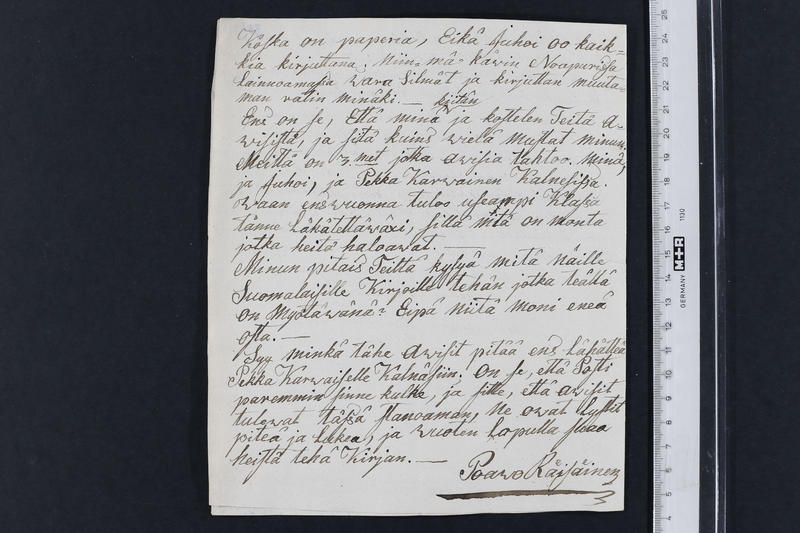 Koska on paperia, Eikä Juhoi oo kaik-
kia kirjuttana, Niin-mä-käwin Noapurissa
Lainnoamassa wara Silmät ja kirjuttan muuta-
man ratin minäki. —
kiitän
Ens on se, Että minä ja kostelen Teitä A-
wisista, ja siitä kuins wielä Mustat minun.
Meitä on 3. met jotka awisia tahtoo. Minä,
ja Juhoi, ja Pekka Karwainen Kalnesissa.
Waan enswuonna tuloo useampi Klassa
tänne Läkätettäwäxi, sillä niitä on monta
jotka heitä haloawat. —
Minun pitäis Teiltä kysyä mitä näille
Suomalaisille Kirjoille tehän jotka teällä
on Myötäwänä? Eipä niitä moni eneä
osta. —
Syy minkä tähe Awisit pitää ens Läkätteä
Pekka Karwaiselle Kalnäsiin. On se, että Posti
paremmin sinne kulke, ja sitte, että awisit
tulowat tässä sanoaman, Ne owat Lystit
piteä ja Lukea, ja wuoten Lopulla soao
heistä tehä Kirjan. —
Poawo Räisäinen